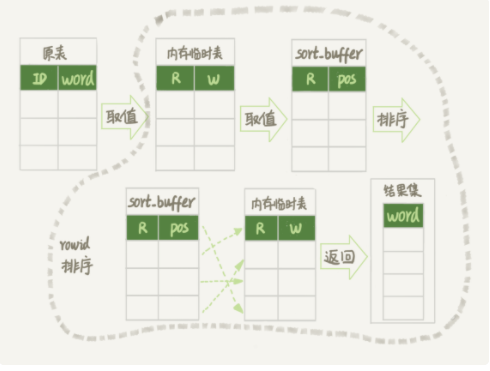 原表
ID word
取值
内存临时表
R W
取值
sort_buffer
R pos
排序
rowid
排序
sort_buffer
R pos
内存临时表
R W
返回
结果集
word